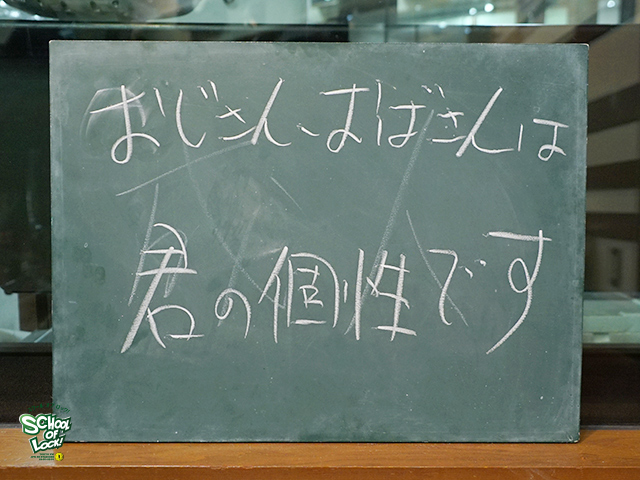 おじさん、おばさんは
君の個性です
SCHOOL
OF
LOCK!